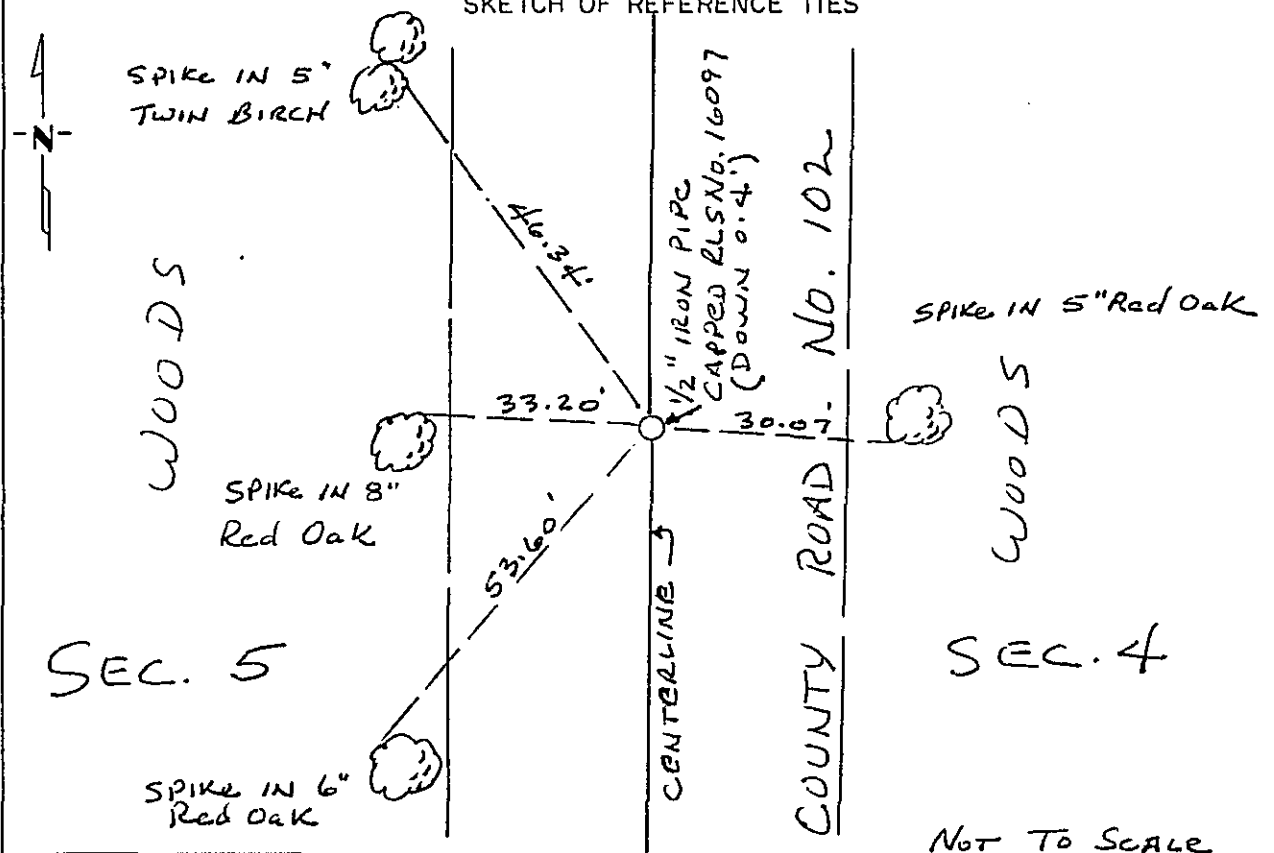 SKETCH OF REFERENCE TIES
SPIKE IN 5"
TWIN BIRCH
-N-
46.34'
1/2" IRON PIPE
CAPPED RLS No. 16097
(DOWN 0.4')
COUNTY ROAD No. 102
WOODS
SPIKE IN 5" Red Oak
33.20'
30.07'
WOODS
SPIKE IN 8"
Red Oak
53.60'
CENTERLINE
SEC. 5
SEC. 4
SPIKE IN 6"
Red Oak
NOT TO SCALE